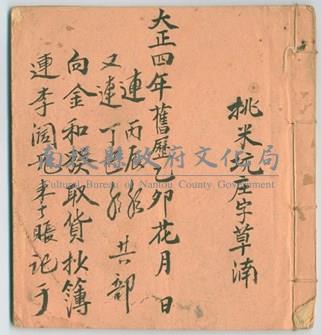 桃米坑庄字草湳
大正四年舊曆乙卯花月 日
連丙辰年
又連丁巳年共部
向金和發取貨抄簿
連李闊 賬記手
南投縣政府文化局
Cultural Bureau of Nantou County Government